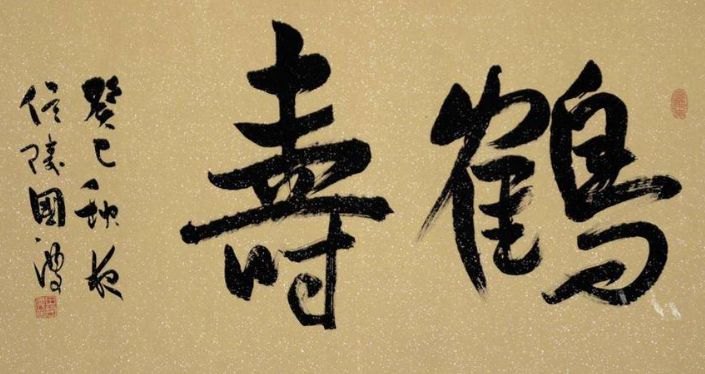 鶴壽
癸巳秋夜
信陵國濤